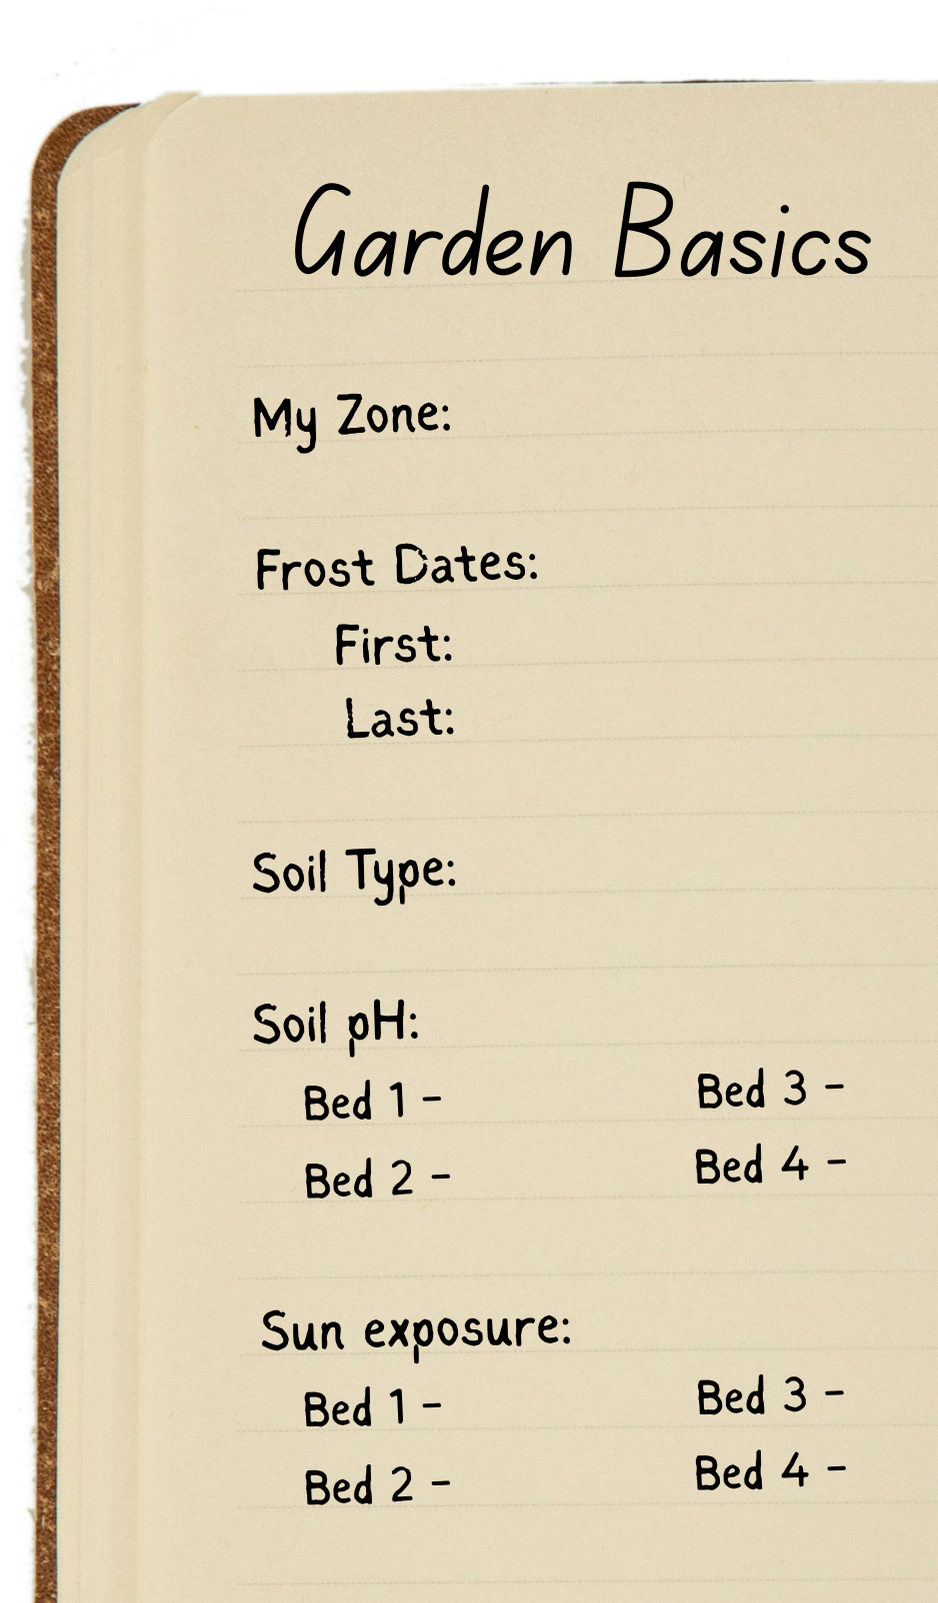 Garden Basics
My Zone:
Frost Dates:
First:
Last:
Soil Type:
Soil pH:
Bed 1 - Bed 3 -
Bed 2 - Bed 4 -
Sun exposure:
Bed 1 - Bed 3 -
Bed 2 - Bed 4 -